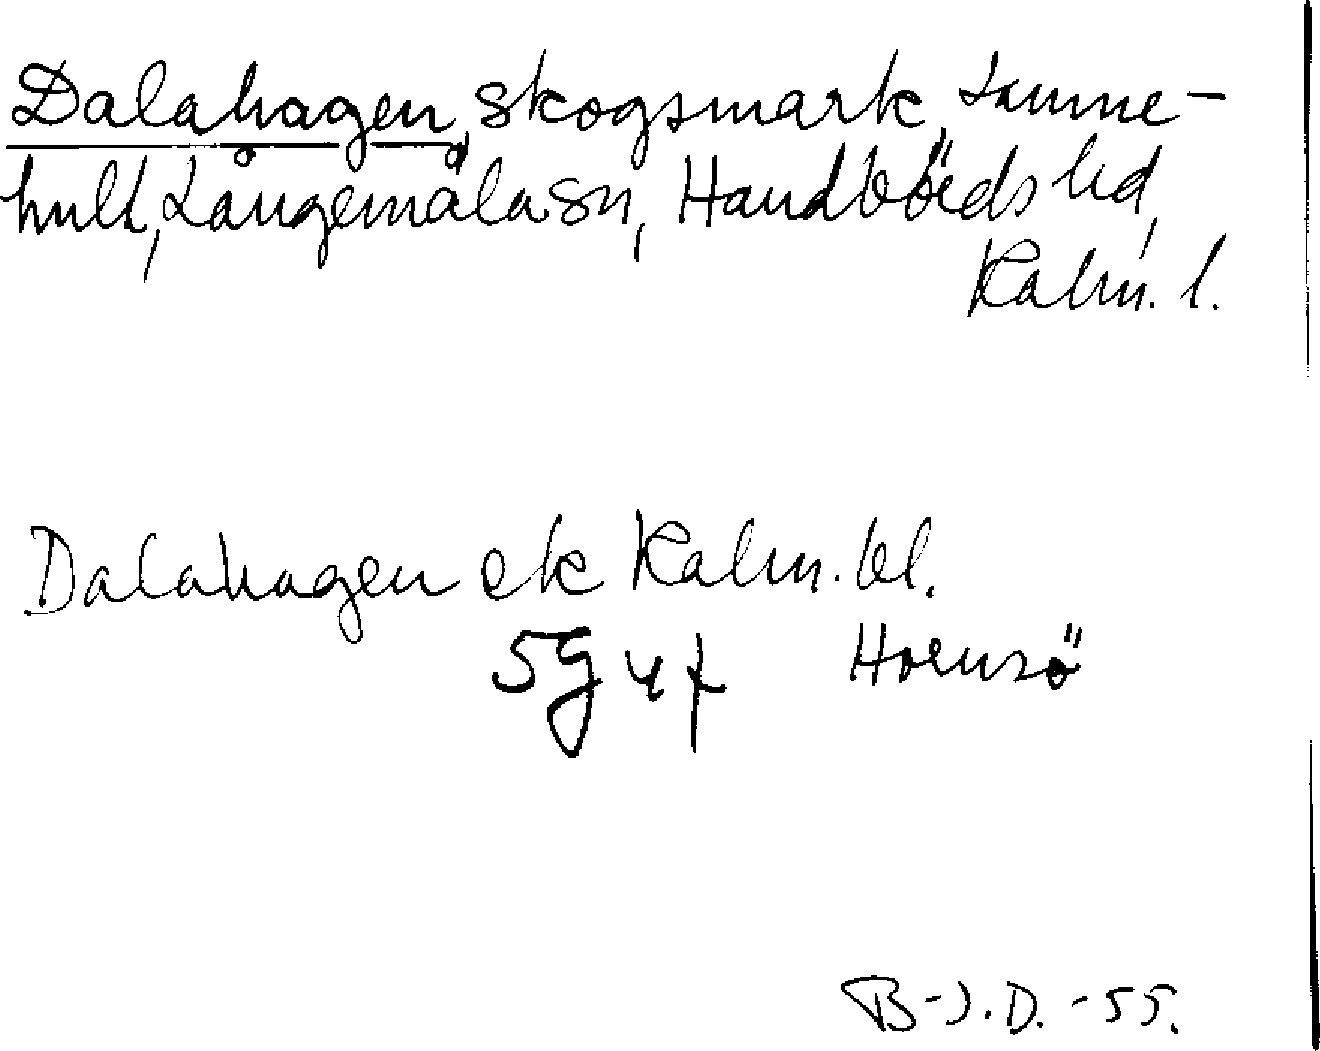 Dalahagen, skogsmark, Lunne-
hult, Långemåla sn, Handbörds hd,
Kalm. l.
Dalahagen ek Kalm. bl.
5g4f Hornsö
B-J.D. -55.